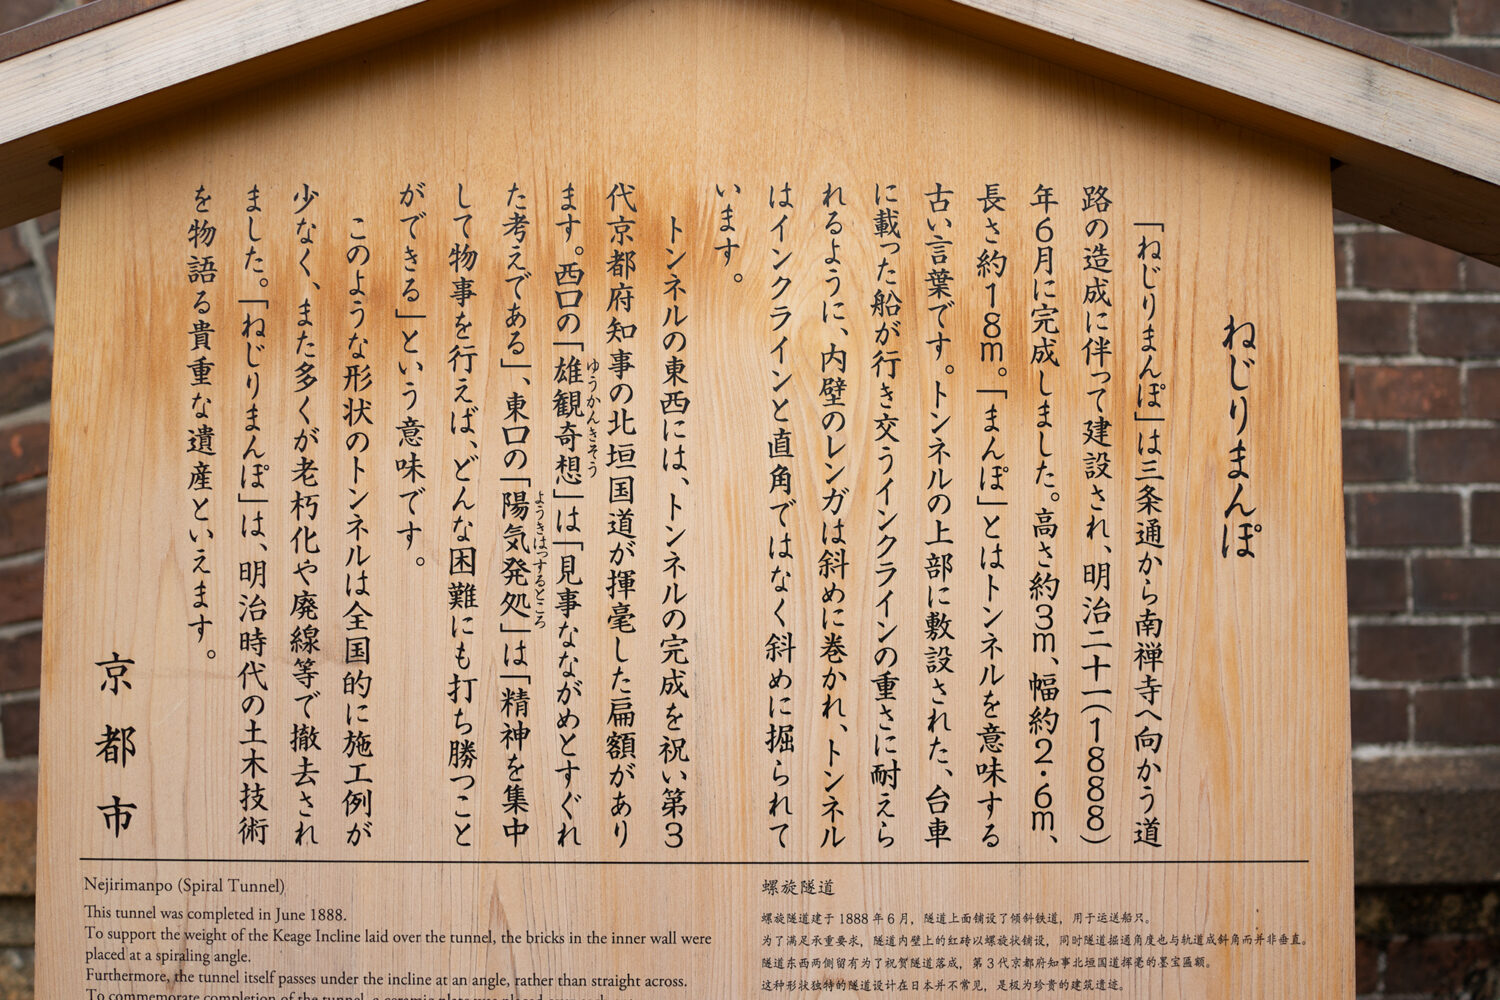 ねじりまんぽ
「ねじりまんぽ」は三条通から南禅寺へ向かう道
路の造成に伴って建設され、明治二十一(1888)
年6月に完成しました。高さ約3m、幅約2・6m、
長さ約18m。「まんぽ」とはトンネルを意味する
古い言葉です。トンネルの上部に敷設された、台車
に載った船が行き交うインクラインの重さに耐えら
れるように、内壁のレンガは斜めに巻かれ、トンネル
はインクラインと直角ではなく斜めに掘られて
います。
トンネルの東西には、トンネルの完成を祝い第3
代京都府知事の北垣国道が揮毫した扁額があり
ます。西口の「雄観奇想」は「見事なながめとすぐれ
ゆうかんきそう
た考えである」、東口の「陽気発処」は「精神を集中
ようきはっするところ
して物事を行えば、どんな困難にも打ち勝つこと
ができる」という意味です。
このような形状のトンネルは全国的に施工例が
少なく、また多くが老朽化や廃線等で撤去され
ました。「ねじりまんぽ」は、明治時代の土木技術
を物語る貴重な遺産といえます。
京都市
Nejirimanpo (Spiral Tunnel)
This tunnel was completed in June 1888.
To support the weight of the Keage Incline laid over the tunnel, the bricks in the inner wall were
placed at a spiraling angle.
Furthermore, the tunnel itself passes under the incline at an angle, rather than straight across.
To commemorate completion of the tunnel, a ceramic plate was placed
螺旋隧道
螺旋隧道建于1888年6月，隧道上面铺设了倾斜铁道，用于运送船只。
为了满足承重要求，隧道内壁上的红砖以螺旋状铺设，同时隧道掘通角度也与轨道成斜角而并非垂直。
隧道东西两侧留有为了祝贺隧道落成，第3代京都府知事北垣国道挥毫的墨宝匾额。
这种形状独特的隧道设计在日本并不常见，是极为珍贵的建筑遗迹。